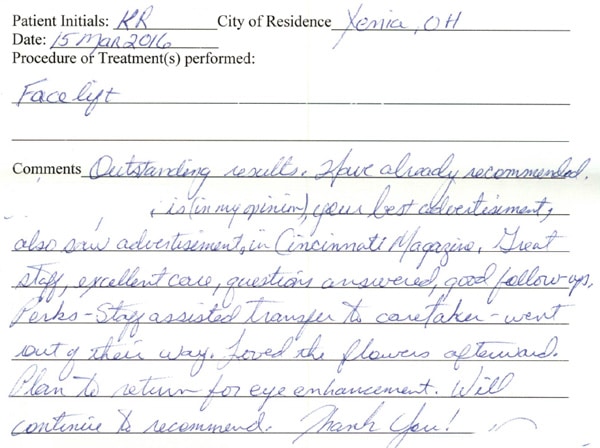 Patient Initials: KR City of Residence Xenia, OH
Date: 15 Mar 2016
Procedure or Treatment(s) performed:
Facelift
Comments Outstanding results. Have already recommended.
is (in my opinion), your best advertisement,
also saw advertisement, in Cincinnati Magazine. Great
staff, excellent care, questions answered, good follow-ups,
Perks - Staff assisted transfer to caretaker - went
out of their way. Loved the flowers afterward.
Plan to return for eye enhancement. Will
continue to recommend. Thank You!